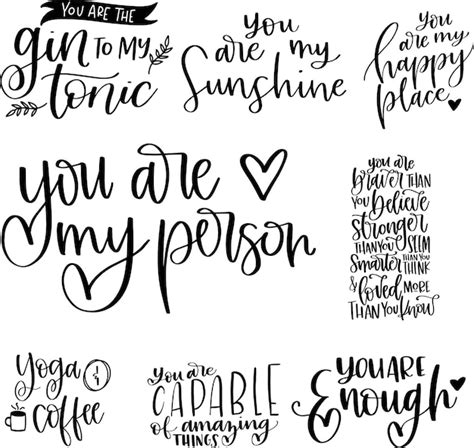 YOU ARE THE
gin TO MY
tonic
You
are my
Sunshine
You
are my
happy
place
you are
my person
you are
braver THAN
YOU Believe
stronger
THAN YOU SEEM
smarter THAN YOU
THINK
& loved MORE
THAN YOU KNOW
Yoga
coffee
You are
CAPABLE
of amazing
THINGS
YOU ARE
Enough